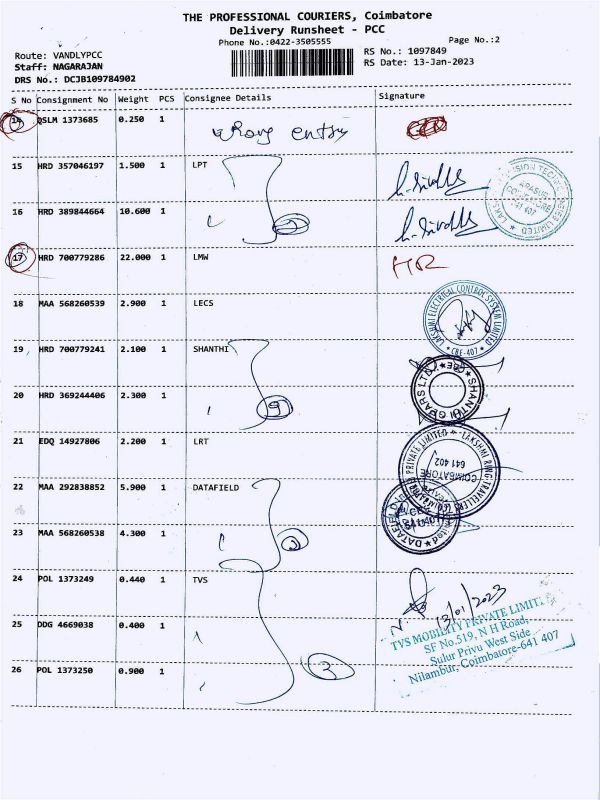 THE PROFESSIONAL COURIERS, Coimbatore
Delivery Runsheet - PCC
Phone No.:0422-3505555
Page No.:2
Route: VANDLYPCC
RS No.: 1097849
Staff: NAGARAJAN
RS Date: 13-Jan-2023
DRS No.: DCJB109784902
S No Consignment No Weight PCS Consignee Details Signature
14 QSLM 1373685 0.250 1 wrong entry
15 HRD 357046197 1.500 1 LPT
16 HRD 389844664 10.600 1
17 HRD 700779286 22.000 1 LMW HR
18 MAA 568260539 2.900 1 LECS
LAKSHMI ELECTRICAL CONTROL SYSTEM LIMITED
CBE-407
19 HRD 700779241 2.100 1 SHANTHI
SHANTHI GEARS LTD. CBE
20 HRD 369244406 2.300 1
21 EDQ 14927806 2.200 1 LRT
LAKSHMI RING TRAVELLERS PRIVATE LIMITED
COIMBATORE
641 402
22 MAA 292838852 5.900 1 DATAFIELD
23 MAA 568260538 4.300 1 2
24 POL 1373249 0.440 1 TVS
13/01/2023
25 DDG 4669038 0.400 1
TVS MOBILITY PRIVATE LIMITED
SF No.519, N H Road,
Sulur Privu West Side
Nilambur, Coimbatore-641 407
26 POL 1373250 0.900 1 3